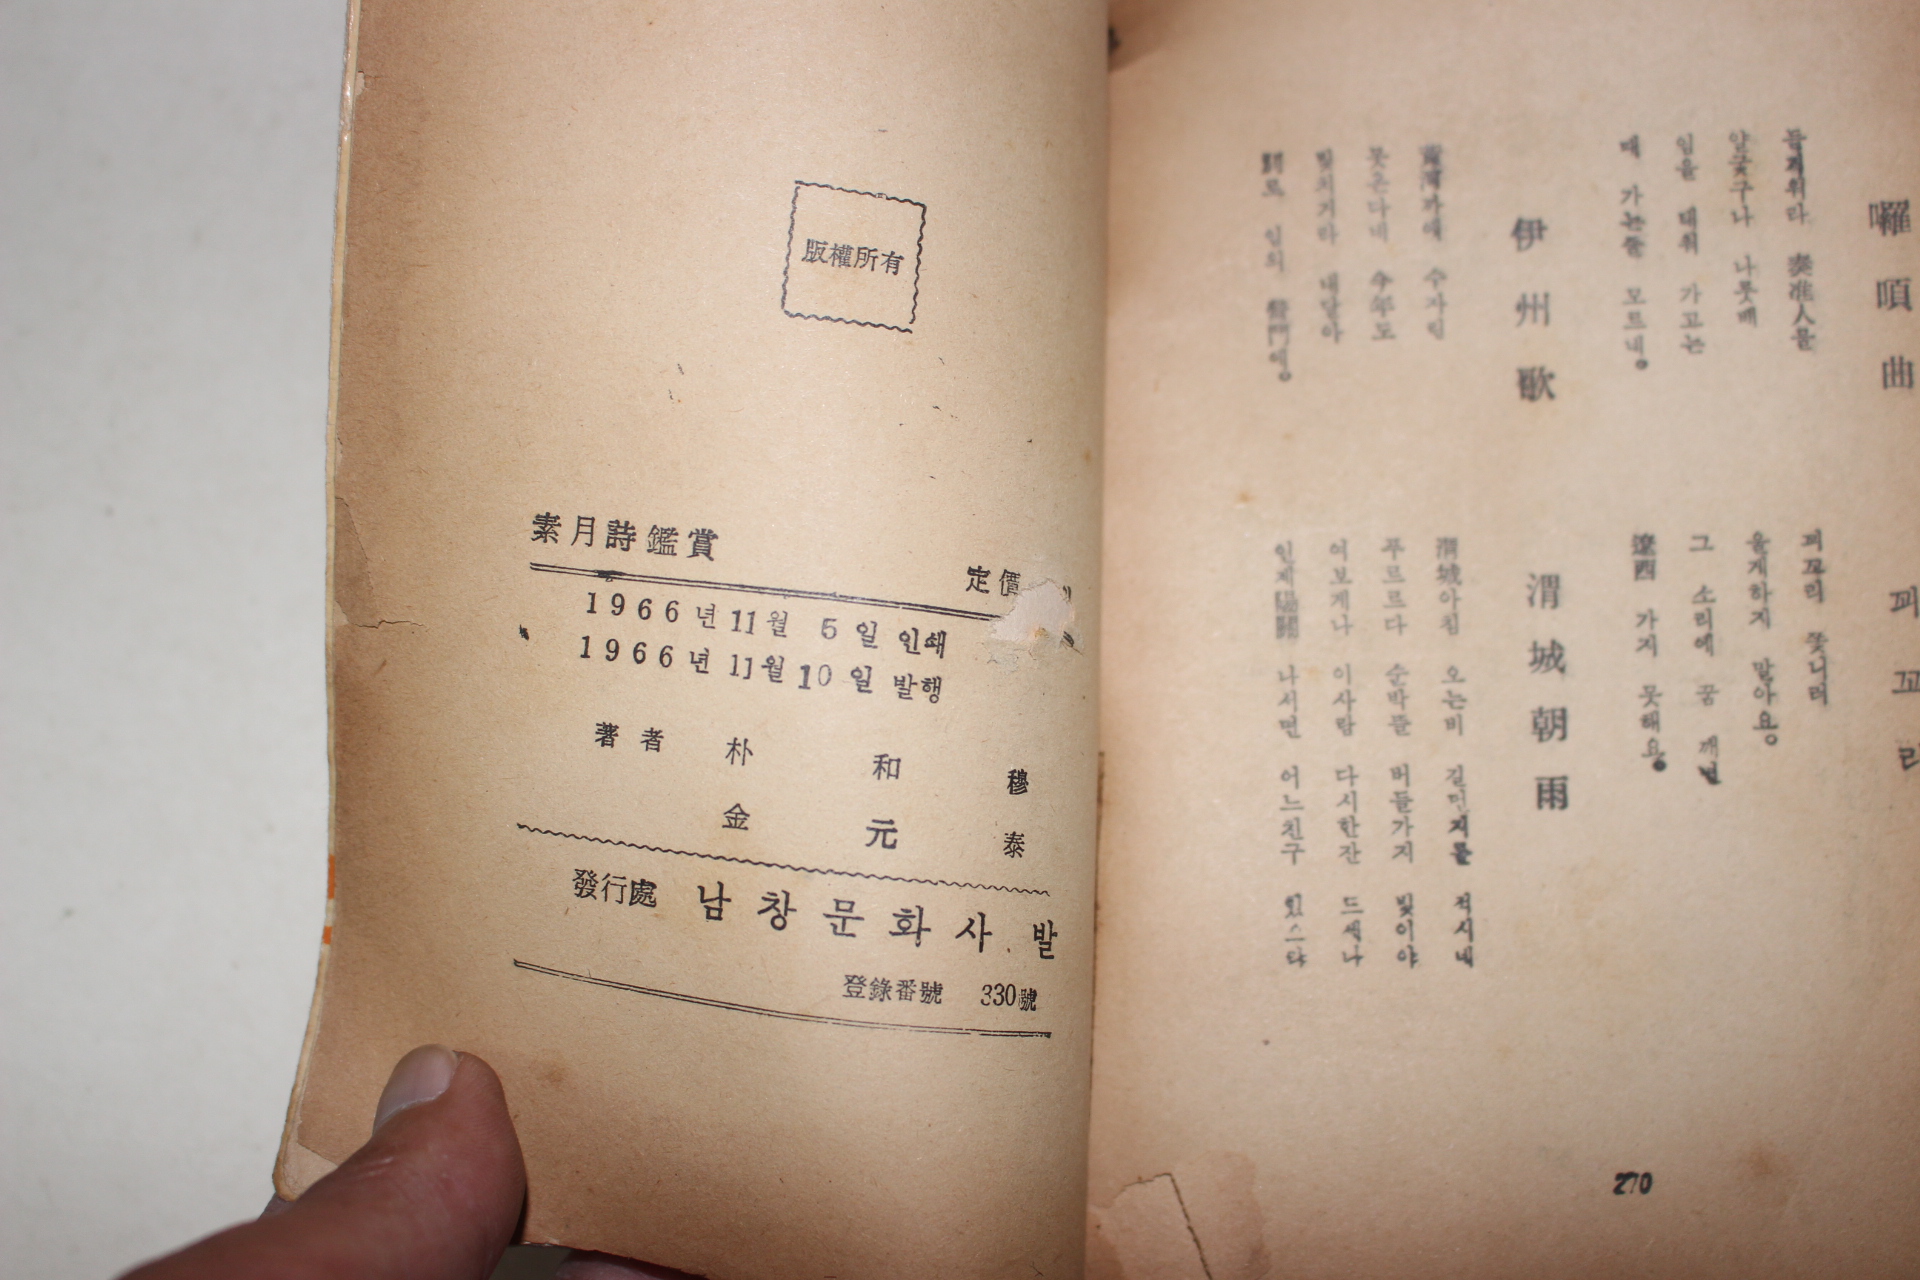 版權所有
素月詩鑑賞
定價
1966년 11월 5일 인쇄
1966년 11월 10일 발행
著者 朴和穆
金元泰
發行處 남창문화사 발
登錄番號 330號
囉嗊曲
들게위라 秦准人을
얄궂구나 나룻배
임을 태워 가고는
때 가는줄 모르네。
伊州歌
못온다네 今年도
빛치거라 내달아
꾀꼬리
꾀꼬리 쫓니러
울게하지 말아요。
그 소리에 꿈 깨면
遼西 가지 못해요。
渭城朝雨
渭城아침 오는비 길먼지를 적시네
푸르르다 순박들 버들가지 빛이야
여보게나 이사람 다시한잔 드세나
인제陽關 나서면 어느친구 있스랴
270